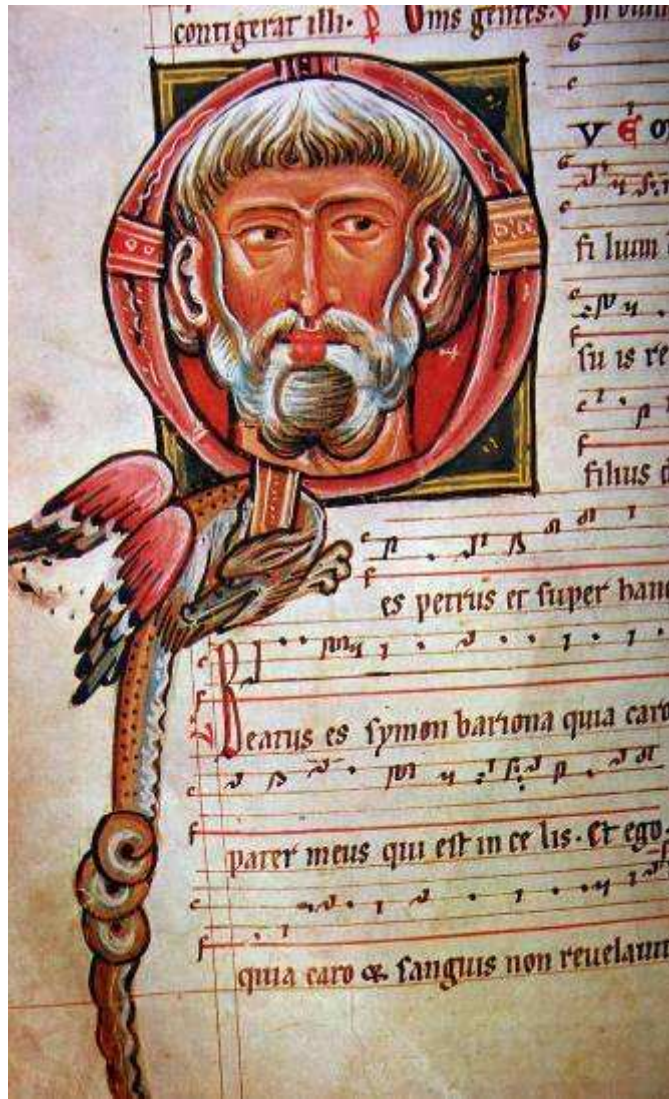 contigerat illi. R Oms gentes. V In omni
V E O
fi lium
su is re
filius d
es petrus et super hanc
R
V Beatus es symon bariona quia caro
pater meus qui est in ce lis. Et ego
quia caro & sanguis non revelavit